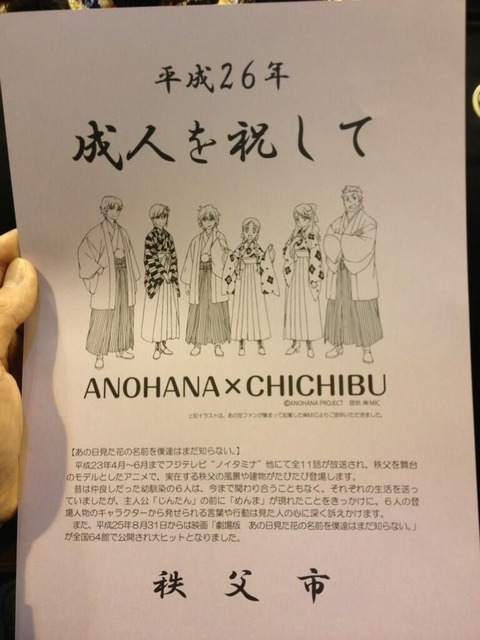 平成26年
成人を祝して
ANOHANA×CHICHIBU
©ANOHANA PROJECT 提供 ㈱MIC
上記イラストは、あの花ファンが集まって起業した㈱MICよりご提供いただきました。
【あの日見た花の名前を僕達はまだ知らない。】
平成23年4月～6月までフジテレビ“ノイタミナ”他にて全11話が放送され、秩父を舞台
のモデルとしたアニメで、実在する秩父の風景や建物がたびたび登場します。
昔は仲良しだった幼馴染の6人は、今まで関わり合うこともなく、それぞれの生活を送っ
ていましたが、主人公「じんたん」の前に「めんま」が現れたことをきっかけに、6人の登
場人物のキャラクターから発せられる言葉や行動は見た人の心に深く訴えかけます。
また、平成25年8月31日からは映画「劇場版 あの日見た花の名前を僕達はまだ知らない。」
が全国64館で公開され大ヒットとなりました。
秩父市